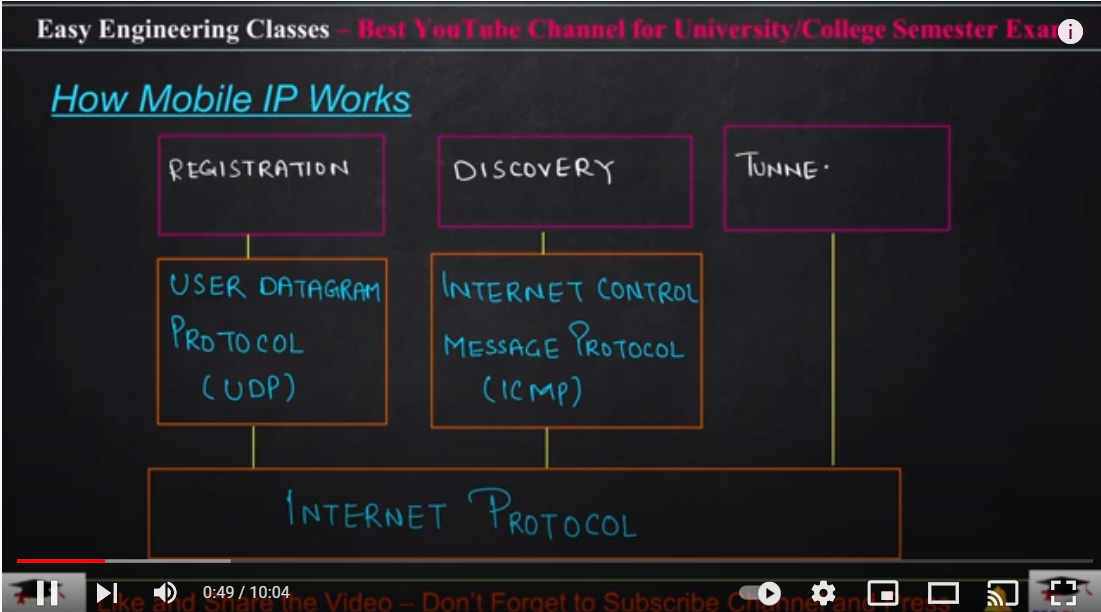 Easy Engineering Classes – Best YouTube Channel for University/College Semester Exa
How Mobile IP Works
REGISTRATION
DISCOVERY
TUNNE
USER DATAGRAM
PROTOCOL
(UDP)
INTERNET CONTROL
MESSAGE PROTOCOL
(ICMP)
INTERNET PROTOCOL
0:49 / 10:04
Like and Share the Video – Don't Forget to Subscribe Channel and